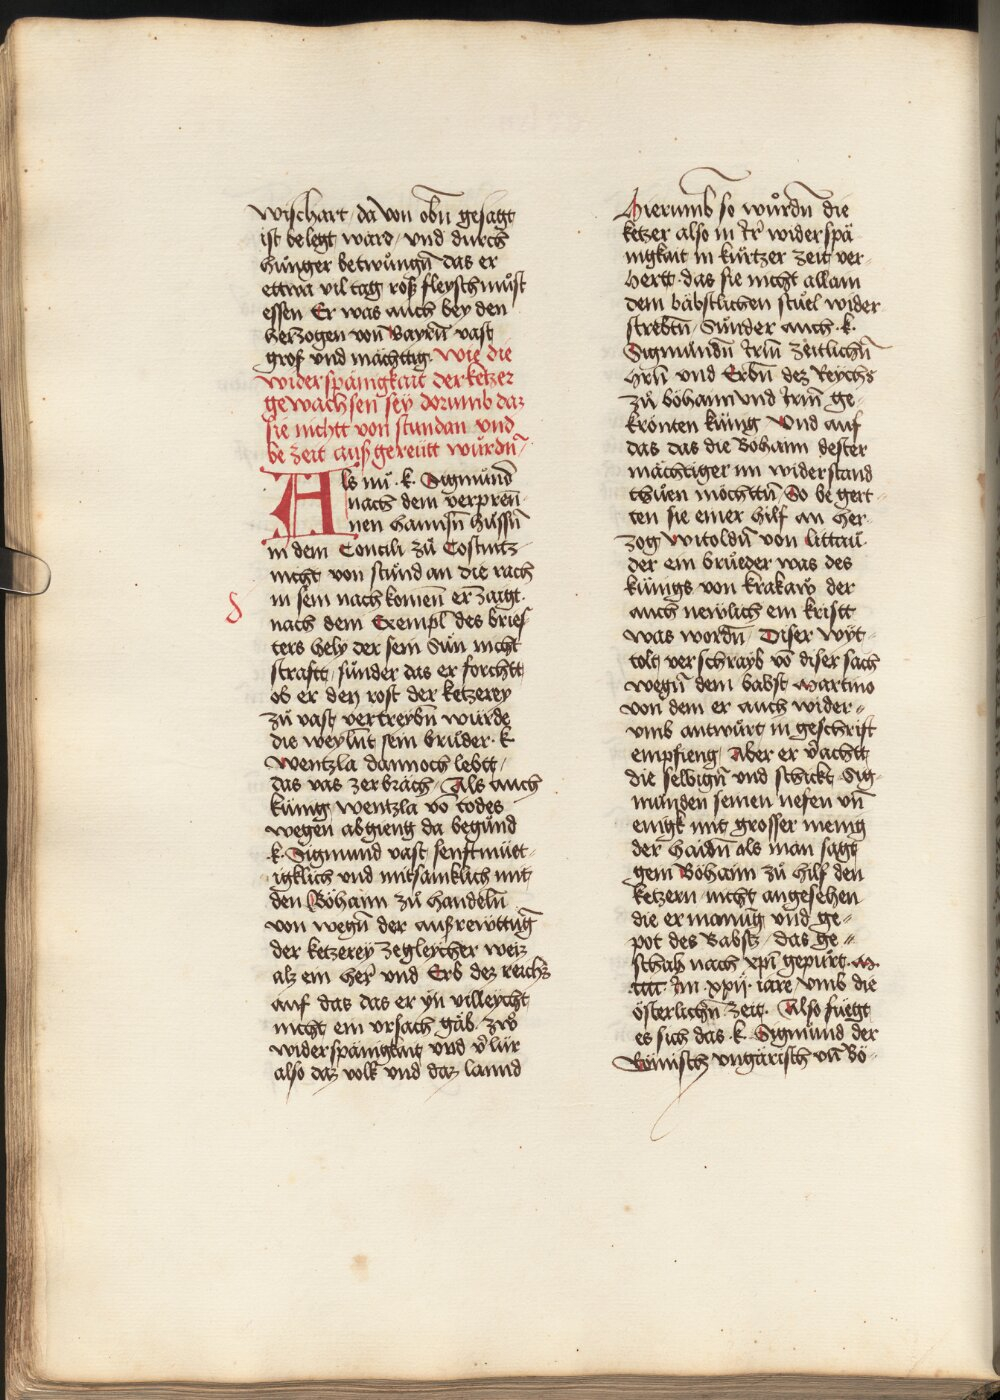 wischart / da von obn̄ gesagt
ist belegt ward / und durch
hunger betwu̇ngn̄ das er
ettwa vil tag roß fleysch mu̇st
essen Er was auch bey den
herzogen von Bayrn̄ vast
groß und mächtig. Wie die
widerspänigkait der ketzer
gewachsen sey dorumb daz
sie nichtt von stundan und
be zeit auß gereütt wu̇rdn̄ /
Als nu̇ .k. Sigmu̇nd
nach dem verpren̄
nen hannsn̄ hu̇ssn̄
in dem Concili zu̇ Costnitz
nicht von stu̇nd an die rach
in sein nachkomen̄ erzaigt.
nach dem Exempl des bries
ters hely der sein Su̇n nicht
strafft / su̇nder das er forchtt
ob er den rost der ketzerey
zu̇ vast vertreybn̄ würde
die weylnt sein bru̇der .k.
wentzla dannoch lebtt /
das vas zerbräch / Als auch
künig wentzla vō todes
wegen abgieng da begu̇nd
.k. Sigmund vast senftmüet-
igklich und mitsamklich mit
den Böhaim zu̇ handeln̄
von wegn̄ der außrewttūg
der ketzerey zegleycher weiz
alz ein her̄ und Erb dez reichs
auf das das er yn̄ villeycht
nicht ein ursach gäb / zw̄
widerspänigkait und v̄lür
also daz volk und daz lannd
Hierumb so wu̇rdn̄ die
ketzer also in ir̄ widerspä
nigkait in kürtzer zeit ver-
hertt. das sie nicht allain
dem bäbstlichen stuel wider
strebtn̄ / Su̇nder auch .k.
Sigmundn̄ irm̄ zeitlichn̄
hrn̄ und Erbn̄ dez Reychs
zu̇ böhaim und irm̄ ge-
krönten künig / Und auf
das das die Böhaim dester
mächtiger im widerstand
thüen möchttn̄ / So begert-
ten sie einer hilf an her-
zog Witoldn̄ von littau̇
der ein brueder was des
künigs von krakaw der
auch newlich ein kristt
was wordn̄ / Diser wyt-
tolt verschrayb vō diser sach
wegn̄ dem babst Martino
von dem er auch wider-
umb antwu̇rt in geschrift
empfieng / Aber er v̄achtt
die selbign̄ und schickt Sig-
munden seinen nefen un̄
einigk mit grosser menig
der haidn̄ als man sagt
gein Böhaim zu̇ hilf den
ketzern / nicht angesehen
die ermanūg und ge-
pot des Babstz / das ge-
schah nach xpī gepu̇rt .M.
cccc im xxij. iare / umb die
österlichn̄ zeit. Also füegt
es sich das .k. Sygmund der
Römisch ungärisch un̄ Bö-